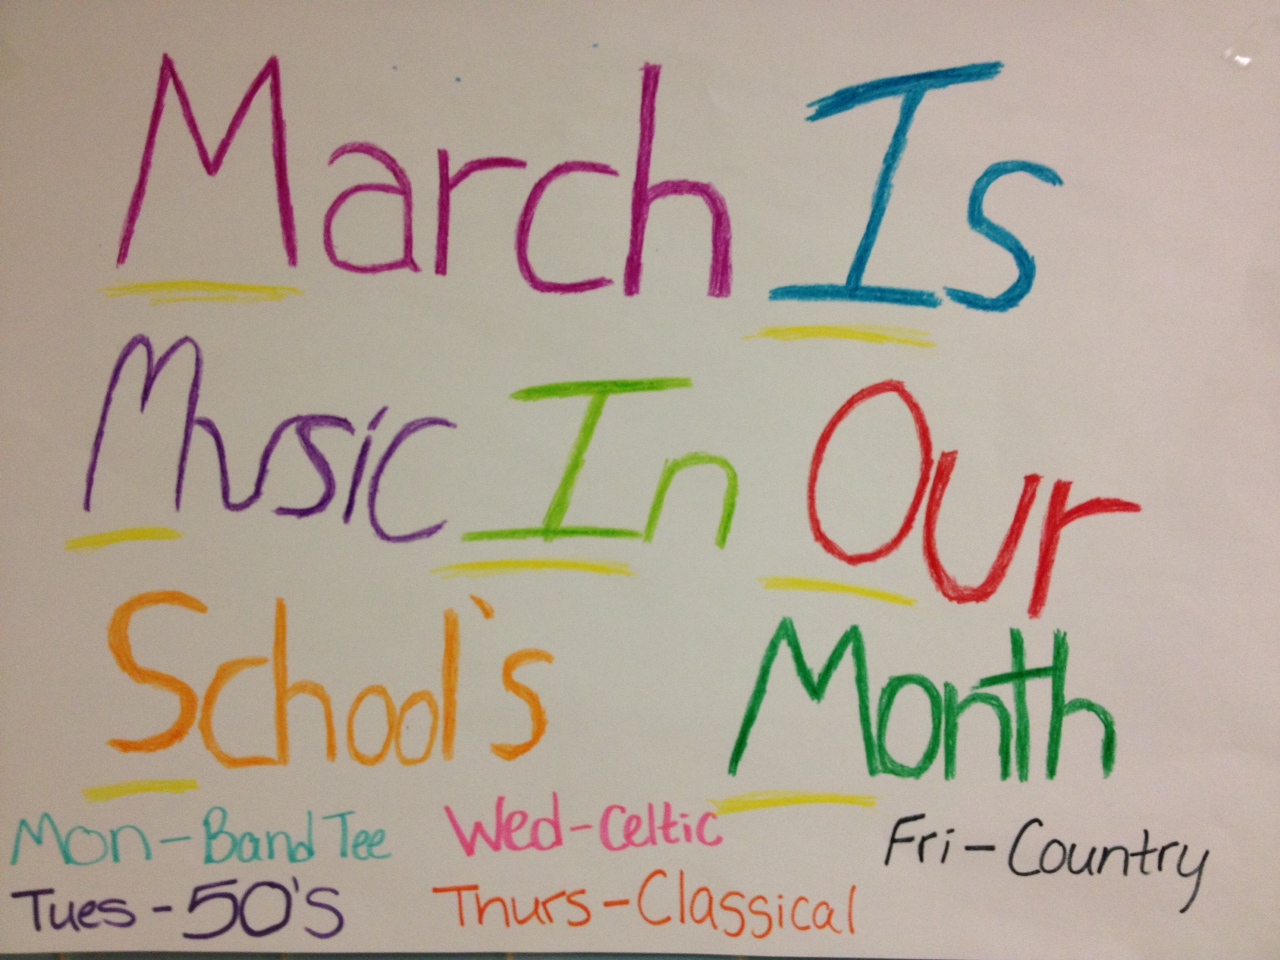 March Is
Music In Our
School's Month
Mon-Band Tee Wed-Celtic Fri-Country
Tues-50's Thurs-Classical